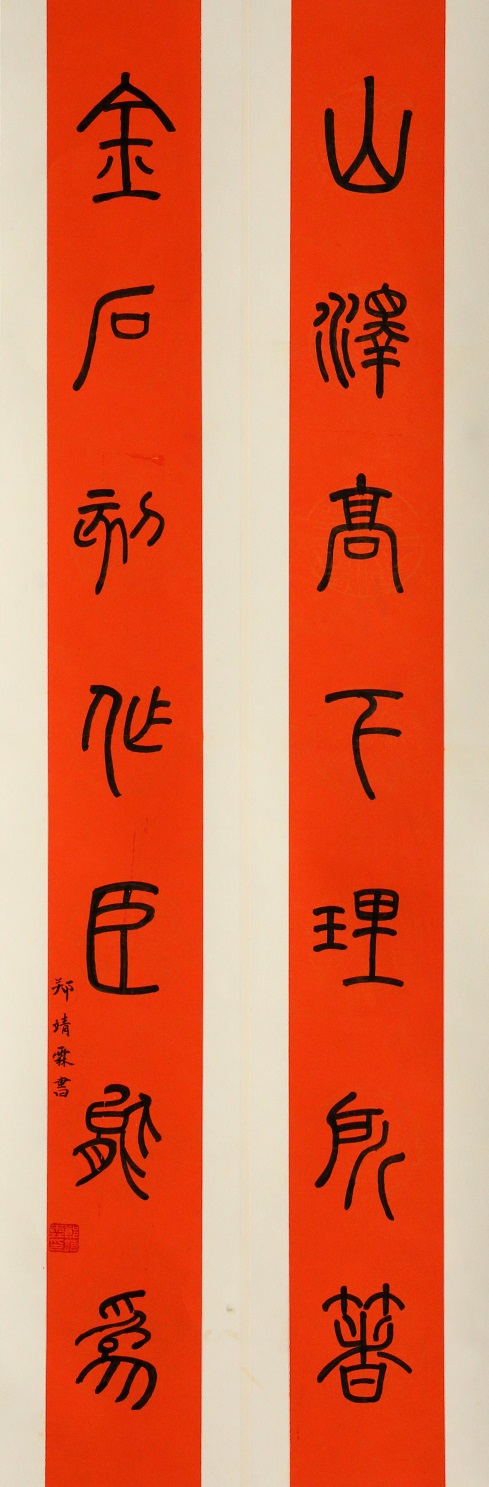 山澤高下理所著
金石刻作臣能為
郑靖霖書